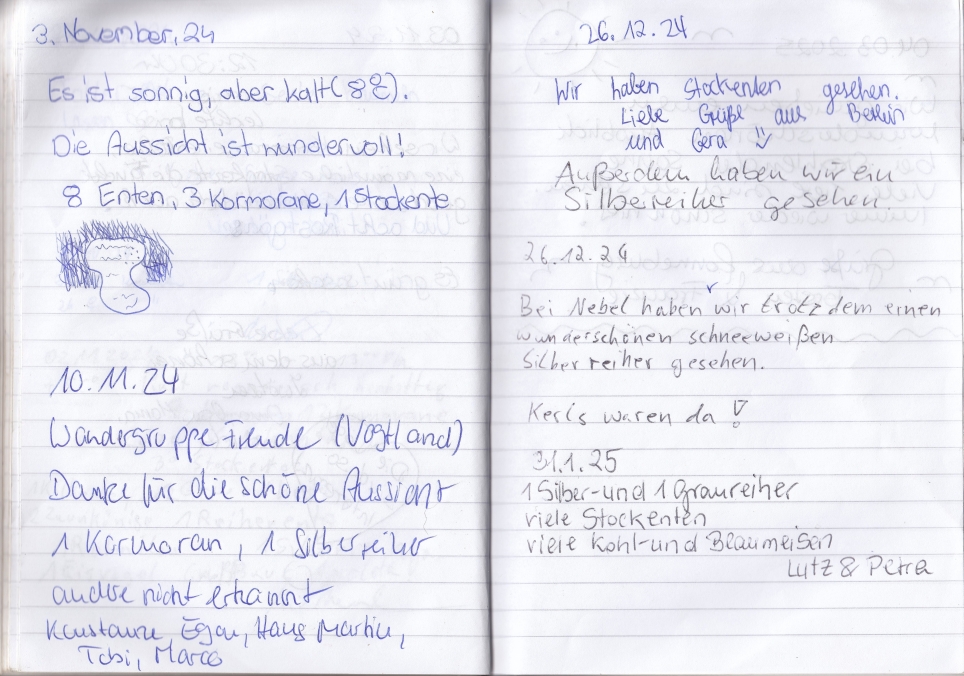 3. November, 24
Es ist sonnig, aber kalt (8°C).
Die Aussicht ist wundervoll!
8 Enten, 3 Kormorane, 1 Stockente
10.11.24
Wandergruppe Freude (Vogtland)
Danke für die schöne Aussicht
1 Kormoran, 1 Silberreiher
andere nicht erkannt
Konstanze, Egon, Hans Martin,
Tobi, Marco
26.12.24
Wir haben Stockenten gesehen.
Liebe Grüße aus Berlin
und Gera
Außerdem haben wir ein
Silbereiher gesehen
26.12.24
Bei Nebel haben wir trotzdem einen
wunderschönen schneeweißen
Silberreiher gesehen.
waren da!
31.1.25
1 Silber- und 1 Graureiher
viele Stockenten
viele Kohl- und Blaumeisen
Lutz & Petra